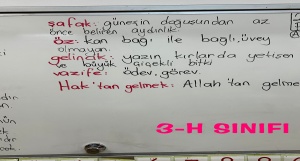 şafak: güneşin doğusundan az
önce beliren aydınlık
öz: kan bağı ile bağlı, üvey
olmayan.
gelincik: yazın kırlarda yetişen
ve büyük çiçekli bitki
vazife: ödev, görev.
Hak'tan gelmek: Allah'tan gelme
3-H SINIFI